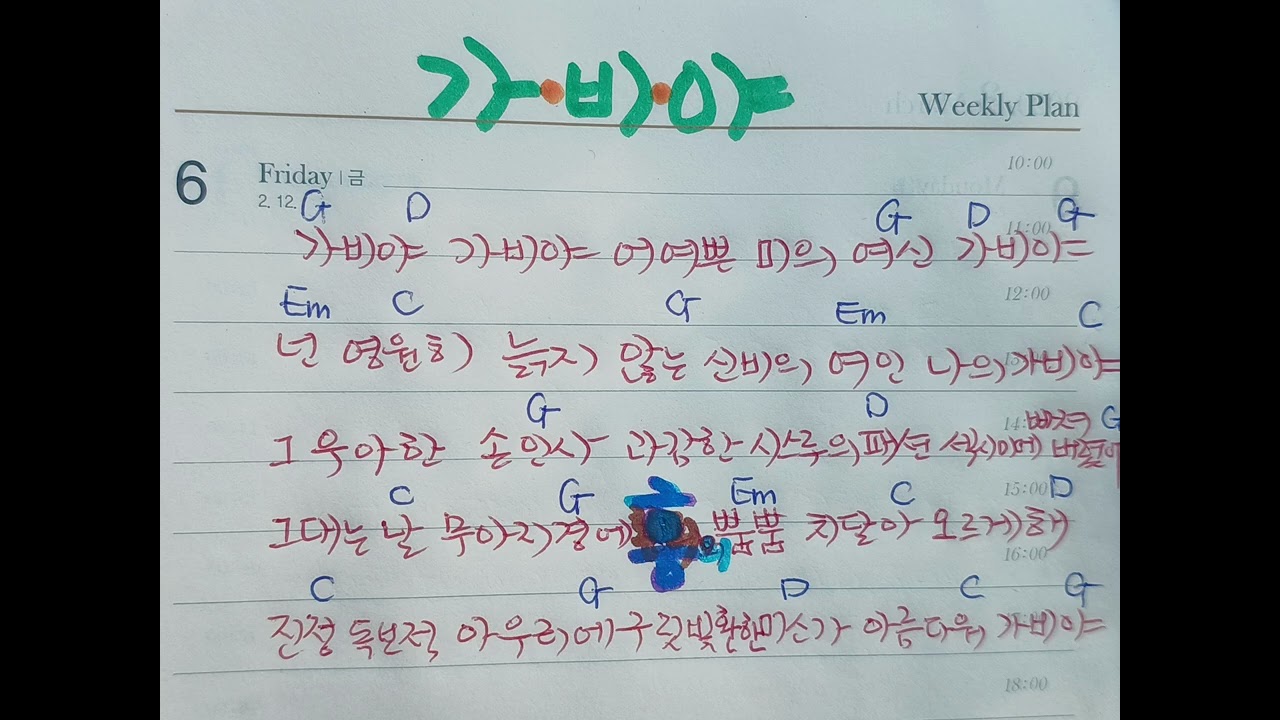 가·비·야
Weekly Plan
6 Friday | 금 10:00
2. 12.
G D G D G
11:00
가비야 가비야 어여쁜 미의 여신 가비야
Em C G Em 12:00 C
넌 영원히 늙지 않는 신비의 여인 나의 가비야
G D 14: 빠져 G
그 우아한 손인사 과감한 시스루의 패션 섹시미에
C G Em C 15:00 D
그대는 날 무아지경에 뿜뿜 치달아 오르게 해
16:00
C G D C G
진정 독보적 아우라에 구릿빛 환한 미소가 아름다워 가비야
18:00